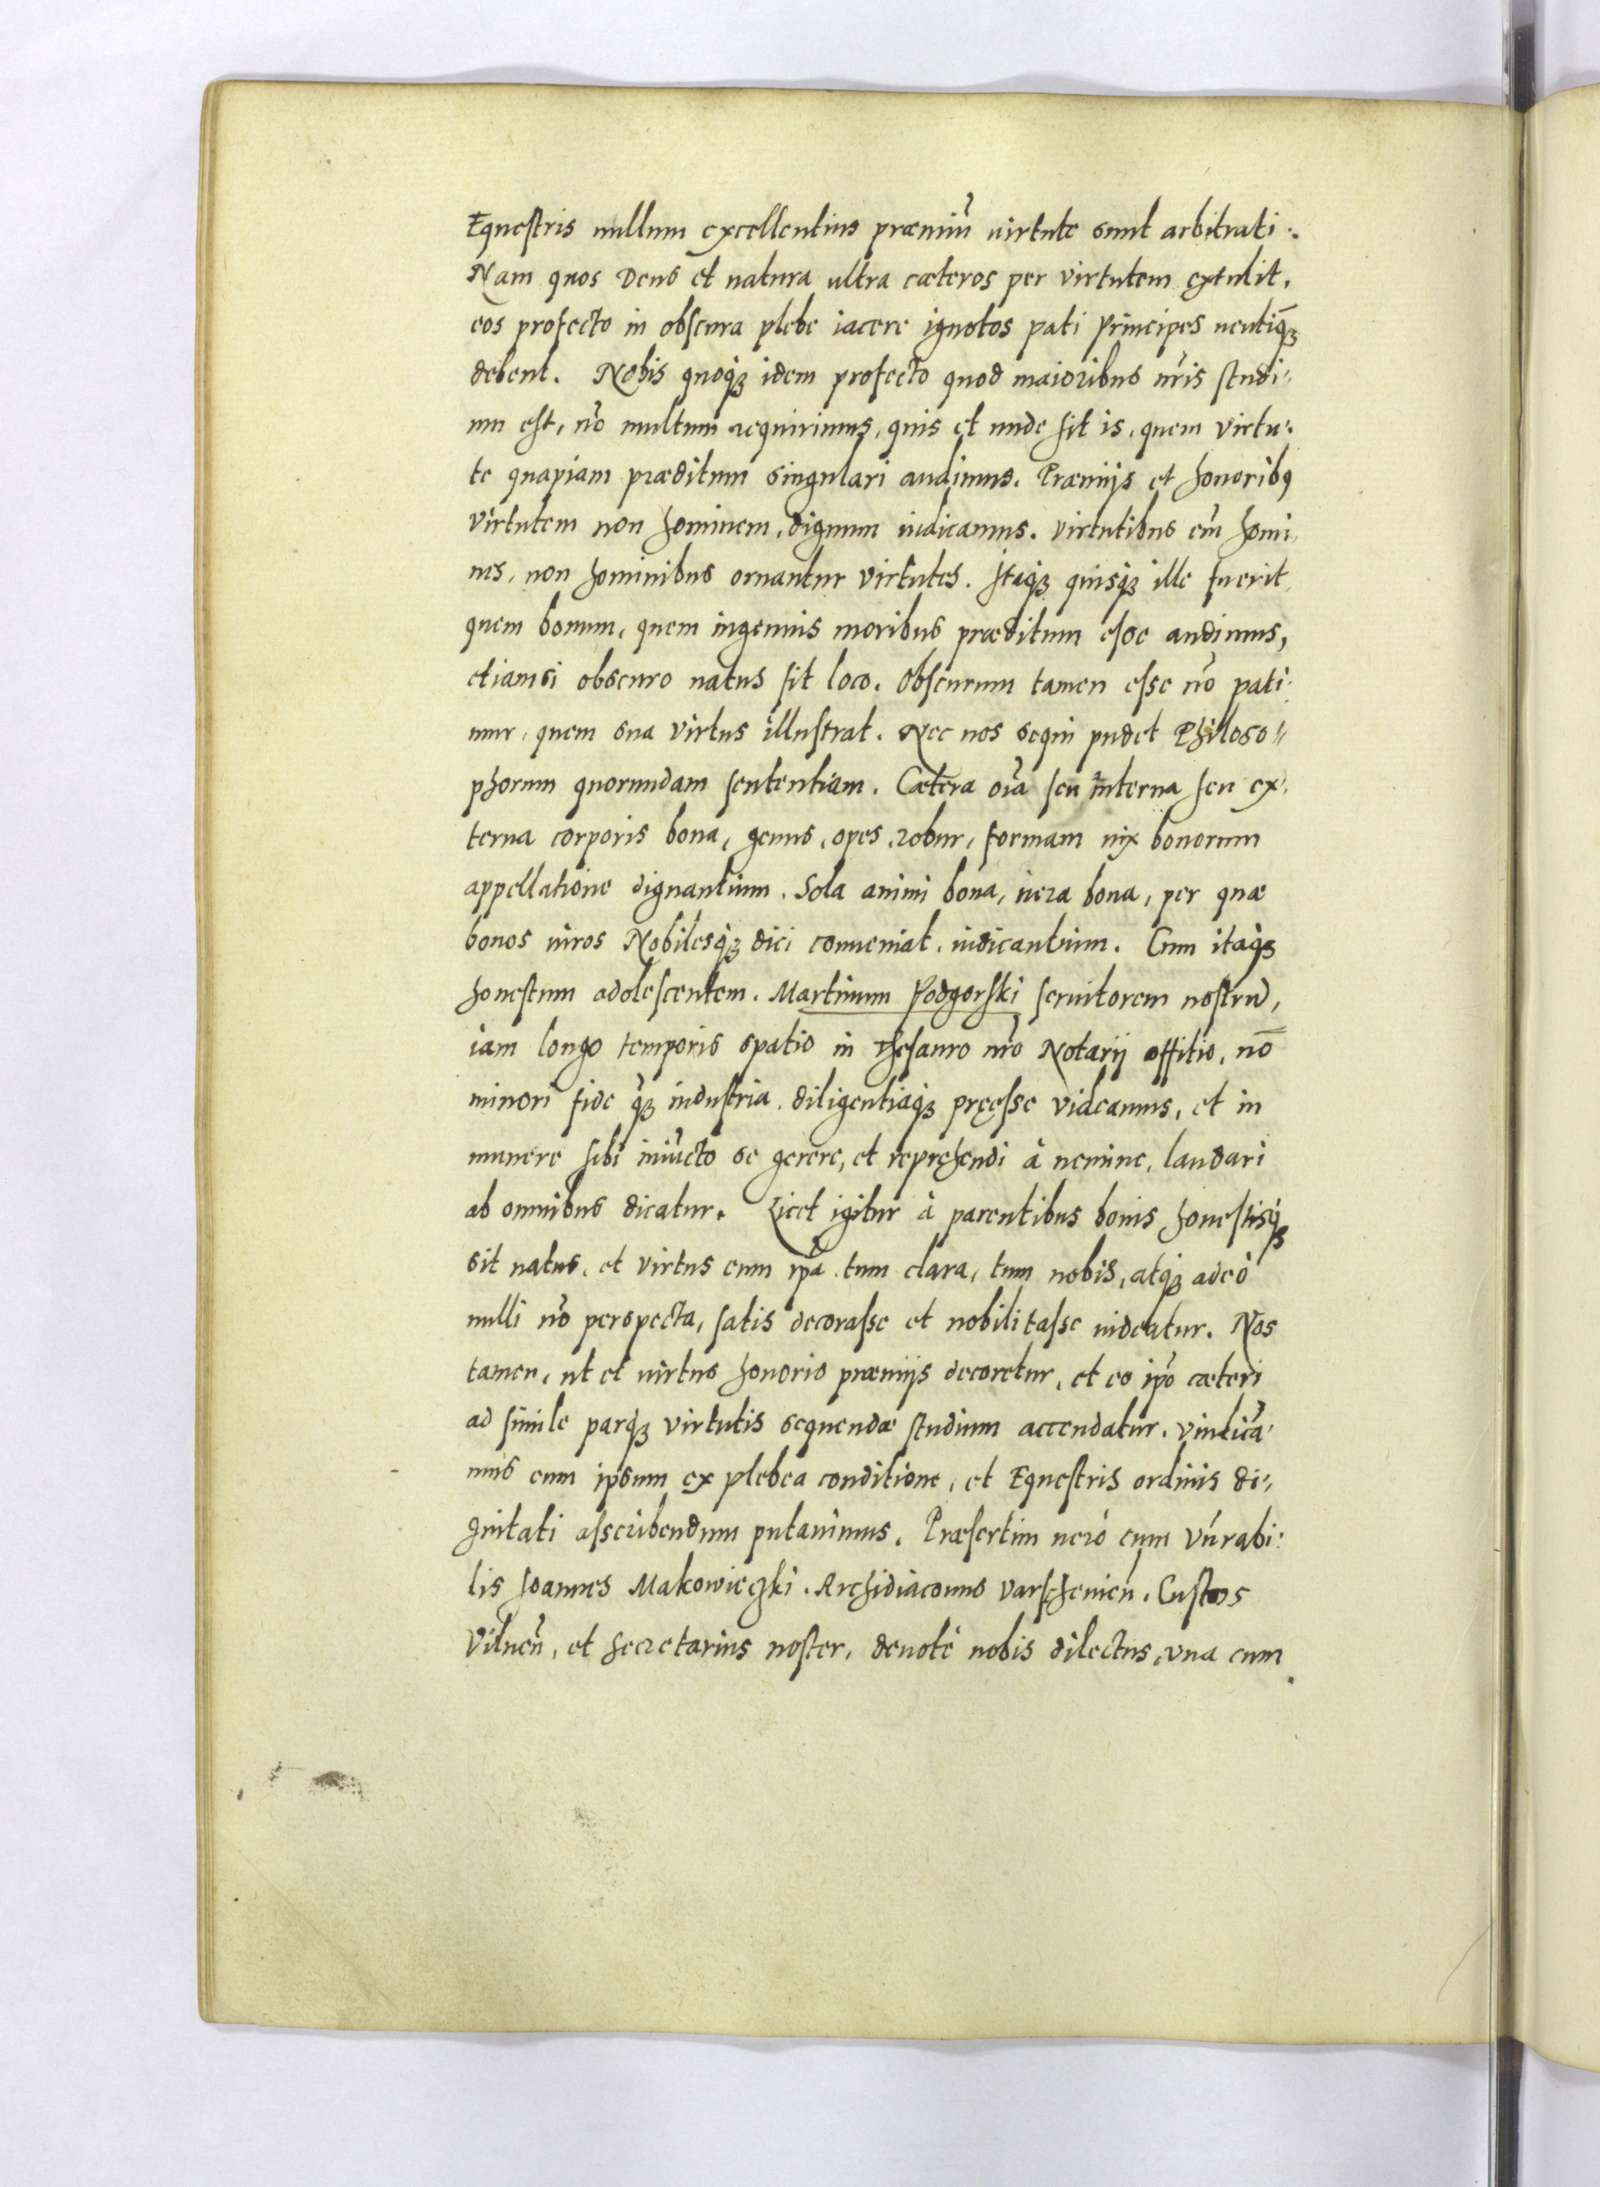 Equestris nullum excellentius præmiũ virtute sunt arbitrati.
Nam quos Deus et natura ultra cæteros per virtutem extulit,
eos profecto in obscura plebe iacere ignotos pati Principes neutiq̃
debent. Nobis quoq; idem profecto quod maioribus nr̃is studi-
um est, nõ multum requirimus, quis et unde sit is, quem virtu-
te quapiam præditum singulari audimus. Præmijs et honoribꝰ
virtutem non hominem, dignum iudicamus. virtutibus em̃ homi-
nes, non hominibus ornantur virtutes. Itaq; quisq; ille fuerit
quem bonum, quem ingenuis moribus præditum esse audimus,
etiamsi obscuro natus sit loco. Obscurum tamen esse nõ pati-
mur, quem sua virtus illustrat. Nec nos sequi pudet Philoso-
phorum quorundam sententiam. Cætera oĩa seu interna seu ex-
terna corporis bona, genus, opes, robur, formam uix bonorum
appellatione dignantium. Sola animi bona, uera bona, per quæ
bonos uiros Nobilesq; dici conueniat, iudicantium. Cum itaq;
honestum adolescentem. Martinum Podgorski seruitorem nostrũ,
iam longo temporis spatio in Thesauro nr̃o Notarij offitio, nõ
minori fide q̃; industria, diligentiaq; pręesse videamus, et in
munere sibi iniũcto se gerere, et repręhendi à nemine, laudari
ab omnibus dicatur. Licet igitur à parentibus bonis honestisq;
sit natus, et virtus eum ip̃a tum clara, tum nobis, atq; adeò
nulli nõ perspecta, satis decorasse et nobilitasse uideatur. Nos
tamen, ut et uirtus honoris præmijs decoretur, et eo ip̃o cæteri
ad simile parq; virtutis sequendæ studium accendatur. vindicã-
mus eum ipsum ex plebea conditione, et Equestris ordinis di-
gnitati asscribendum putauimus. Præsertim uerò cum Vñrabi-
lis Joannes Makowieczki. Archidiaconus Varscheuien̄. Custos
Vilnen̄, et Secretarius noster, deuotè nobis dilectus, una cum